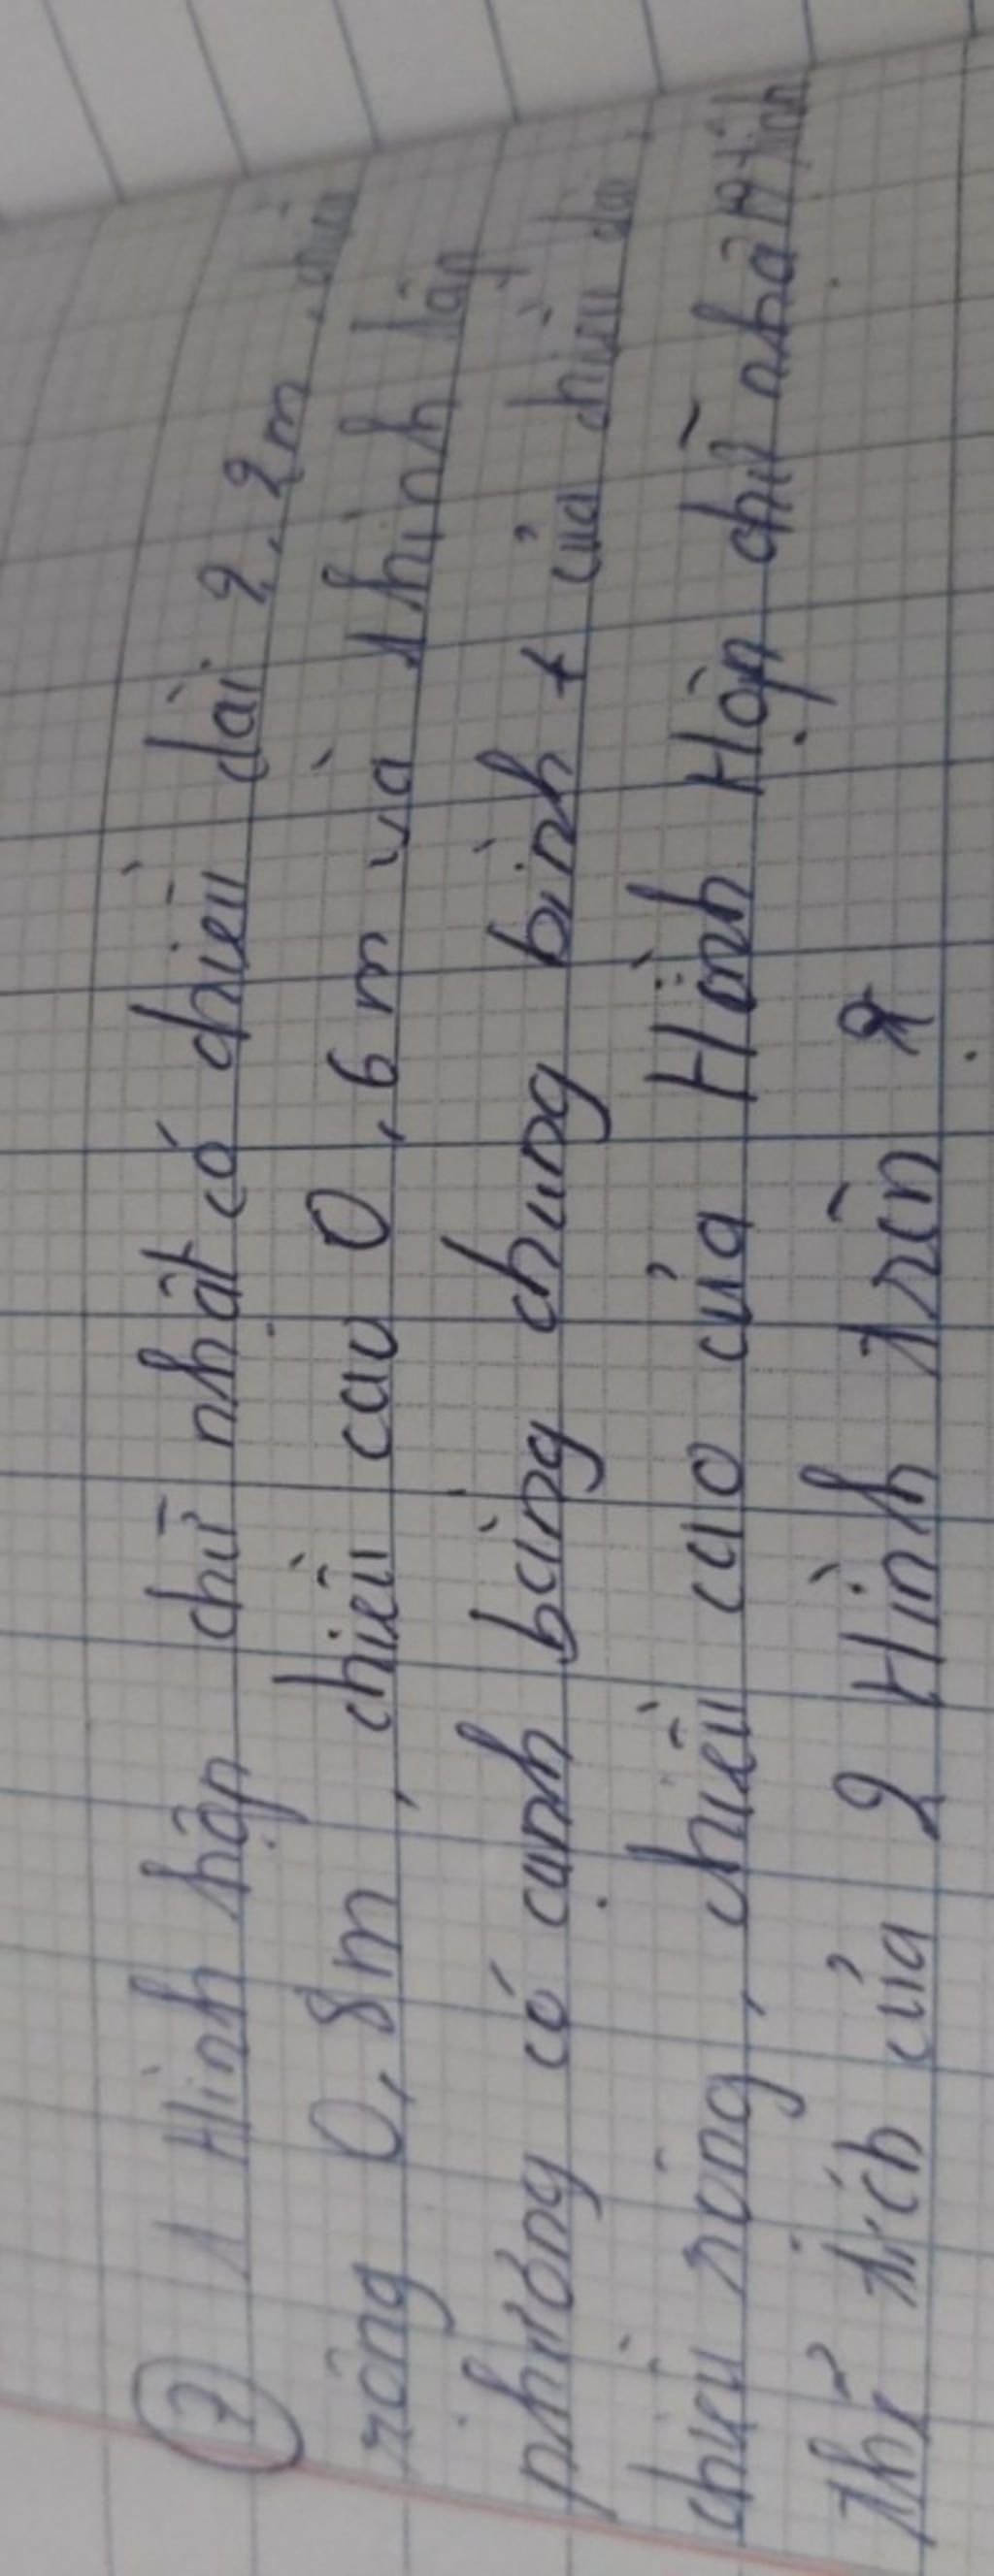 7 1 Hình hộp chữ nhật có chiều dài 2,2m, chiều
rộng 0,8m, chiều cao 0,6m và 1 hình lập
phương có cạnh bằng chung bình + của chiều dài,
chiều rộng, chiều cao của Hình Hộp chữ nhật tính
thể tích của 2 Hình trên ?